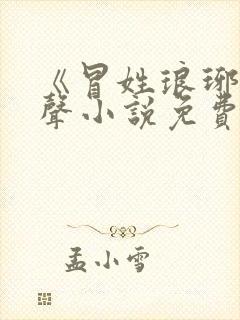 《冒姓琅琊
聲小說免費
孟小雪